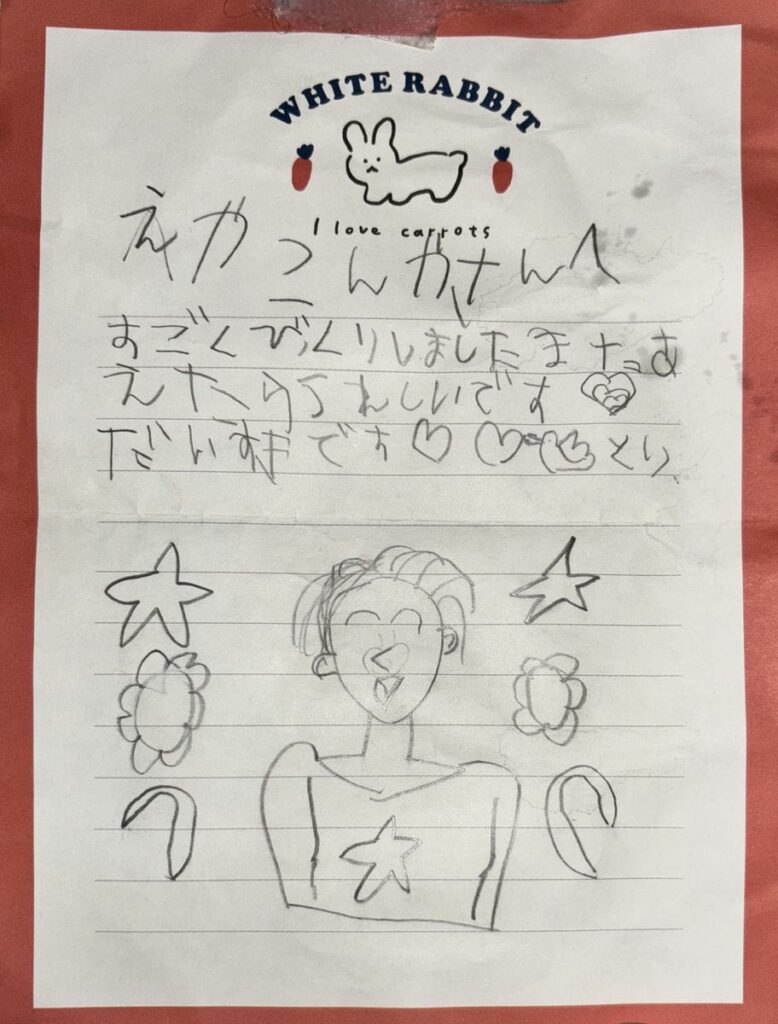 WHITE RABBIT
I love carrots
えやこんやさんへ
すごくびっくりしましたまたあ
えたらうれしいです
だいすきです